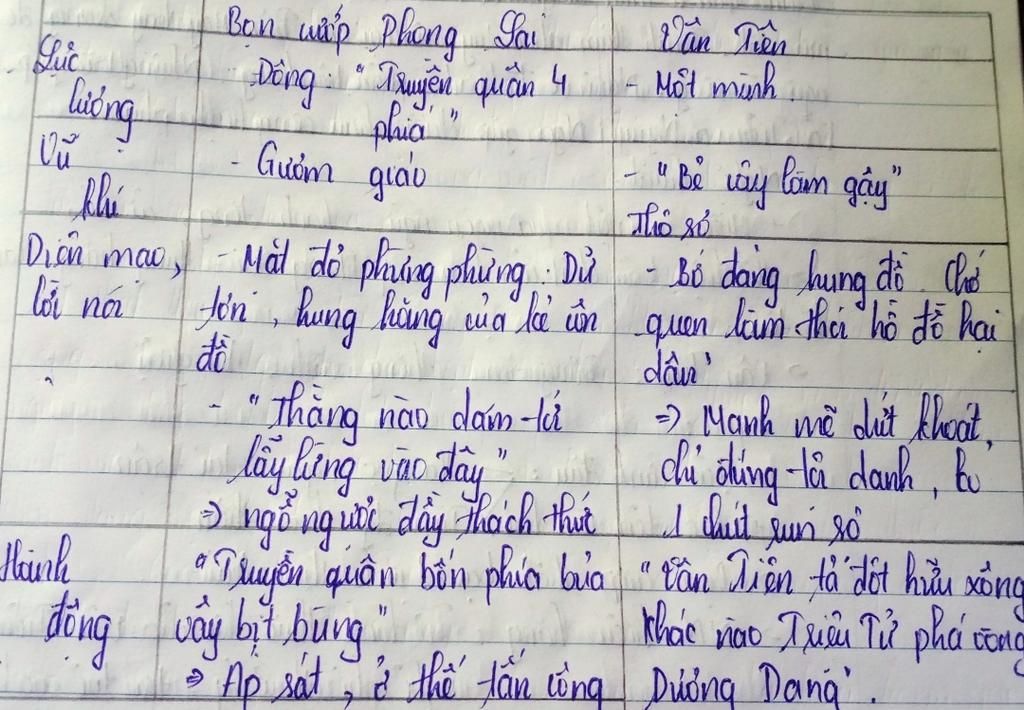 Bọn cướp Phong Lai
Vân Tiên
Lực
lượng
Đông: "Truyền quân 4
phía"
- Một mình.
Vũ
khí
- Gươm giáo
- "Bẻ cây làm gậy"
Thô sơ
Diện mạo,
lời nói
- Mặt đỏ phừng phừng. Dữ
tợn, hung hăng của kẻ côn
đồ
- "Thằng nào dám tới
lẫy lừng vào đây"
=> ngỗ ngược đầy thách thức
- Bớ đảng hung đồ Chớ
quen làm thói hồ đồ hại
dân"
=> Mạnh mẽ dứt khoát,
chỉ đúng tội danh, ko
1 chút run sợ
Hành
động
"Truyền quân bốn phía bủa
vây bịt bùng"
=> Áp sát, ở thế tấn công
"Vân Tiên tả đột hữu xông
khác nào Triệu Tử phá vòng
Đương Dang".